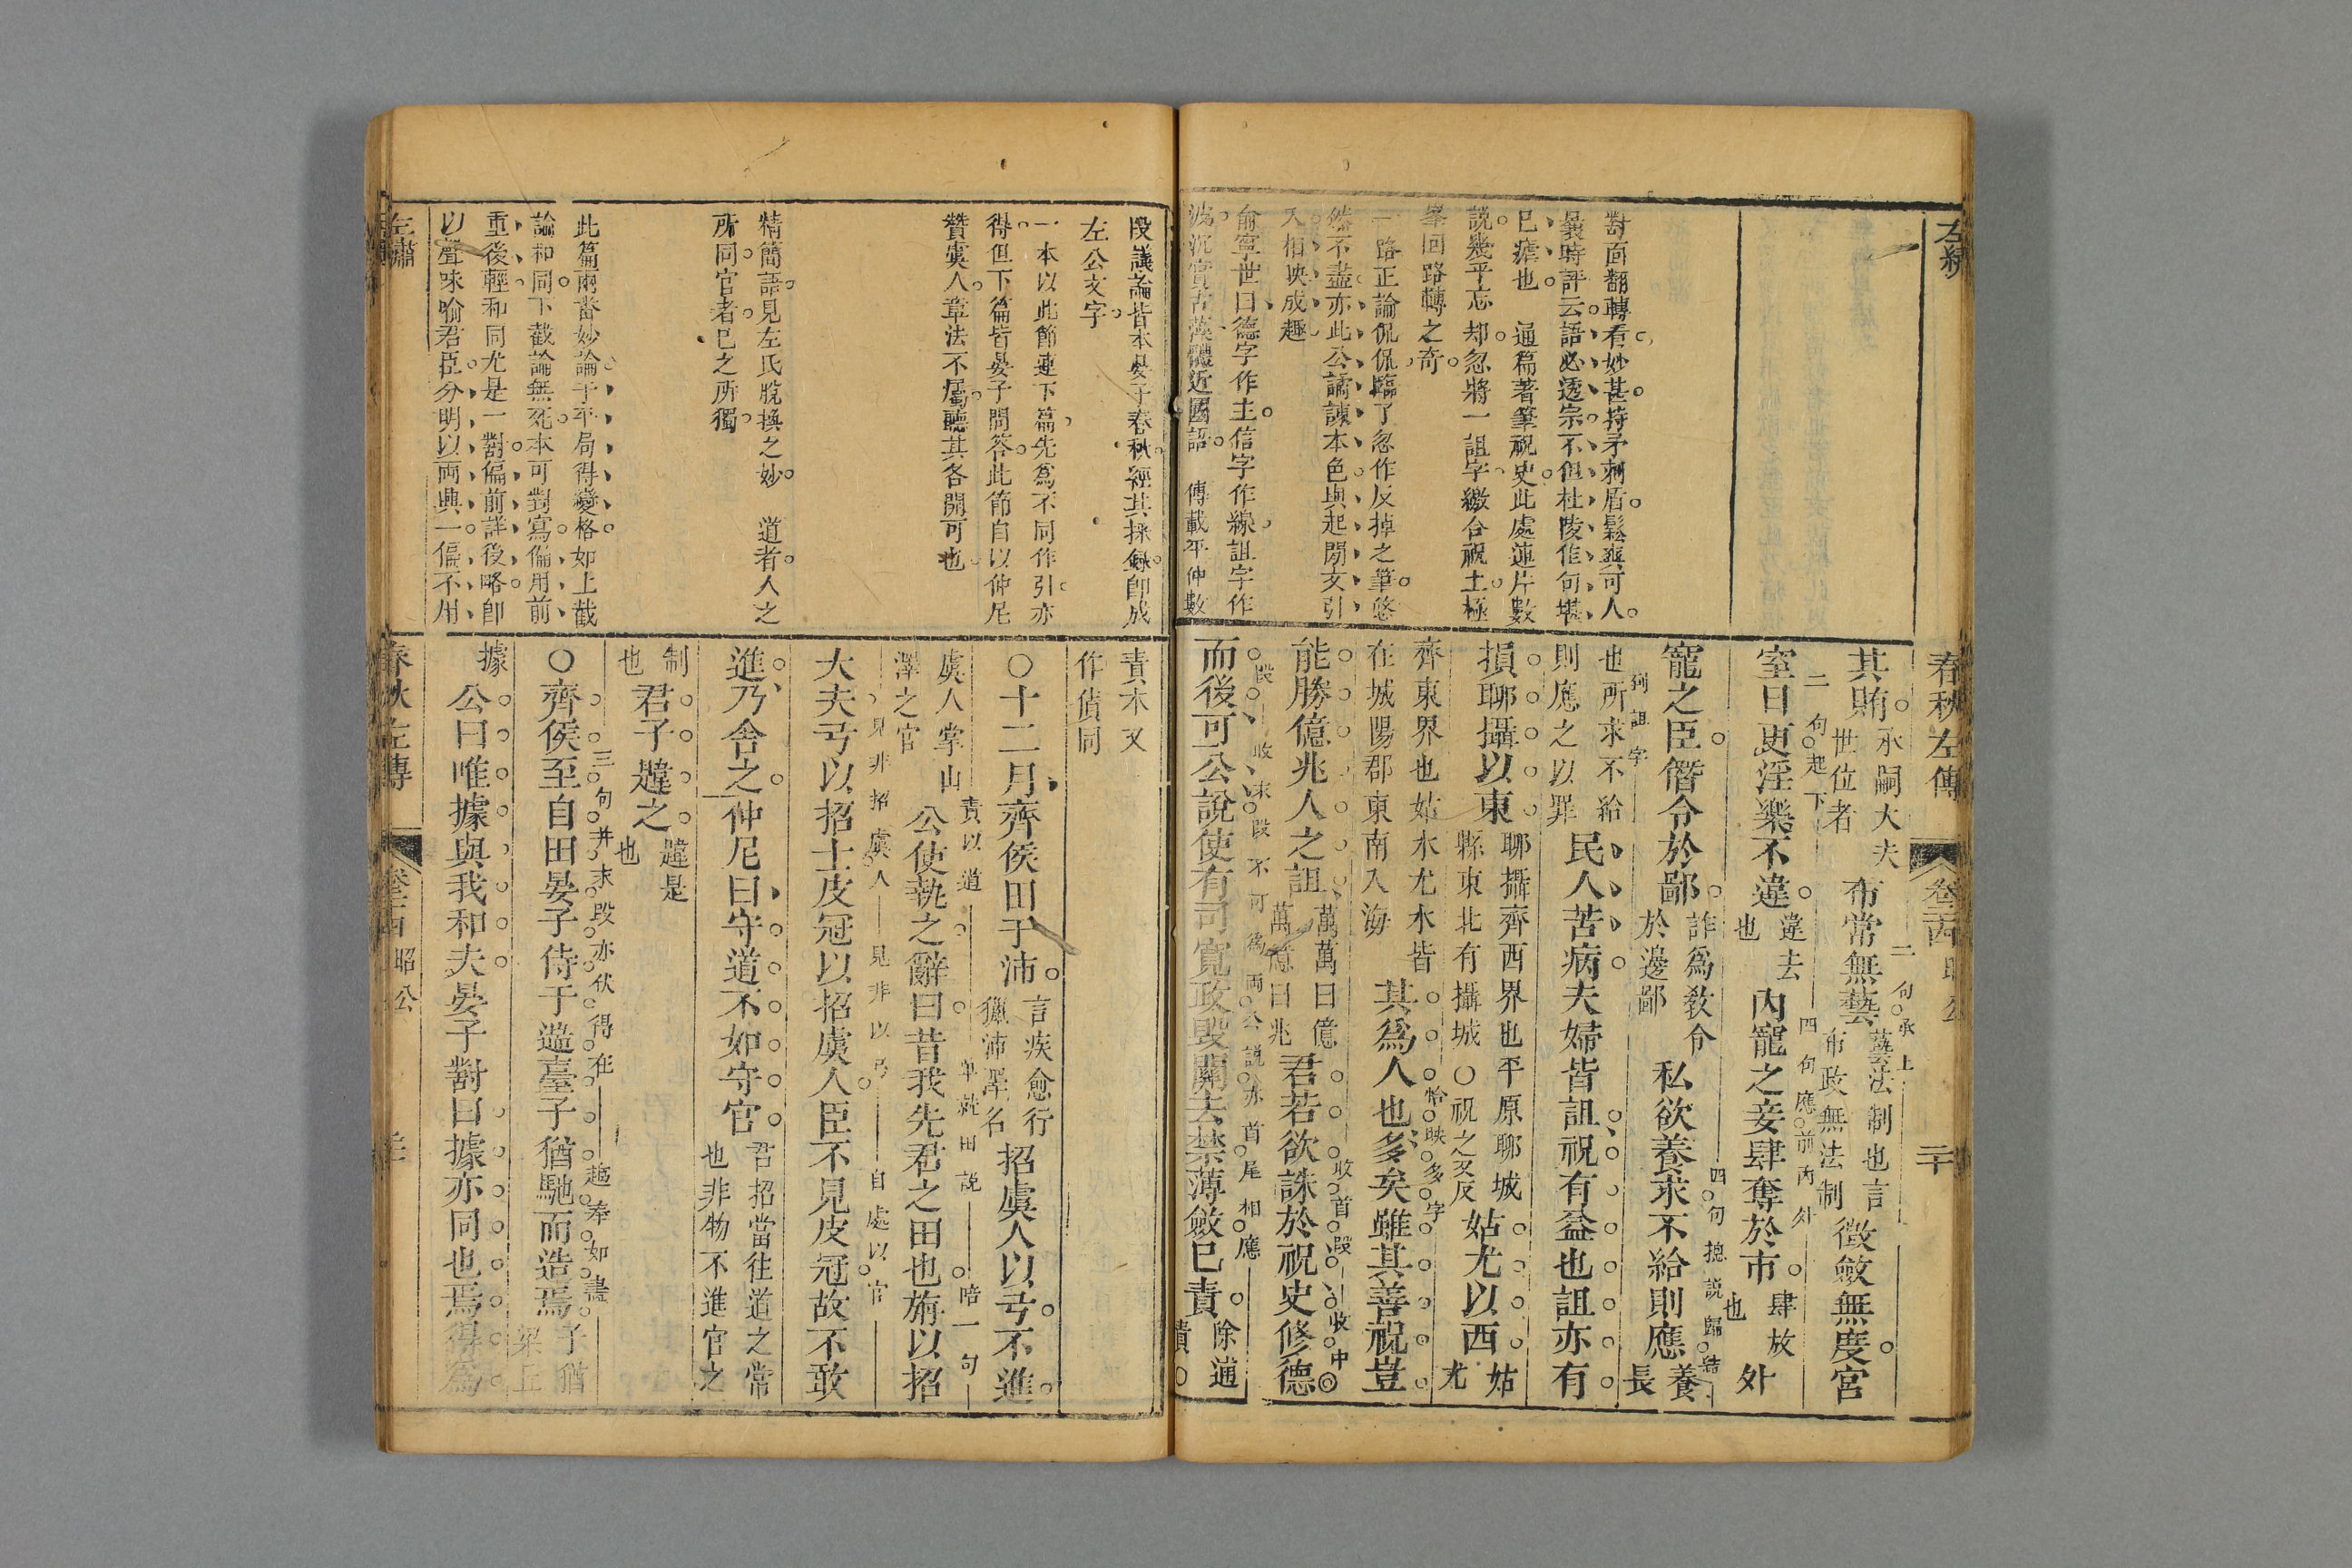 左繡
對面翻轉看妙甚持矛刺盾鬆爽可人
曩時評云語必透宗不但杜陵作句堪
已瘧也 通篇著筆祝史此處連片數
説幾乎忘却忽將一詛字繳合祝土極
峯回路轉之奇
一路正論侃侃臨了忽作反掉之筆悠
然不盡亦此公譎諫本色與起閒文引
入相映成趣
俞寧世曰德字作主信字作線詛字作
波沉實古藻體近國語 傳載平仲數
春秋左傳 昭公 二十
其賄
承嗣大夫
世位者
布常無藝
藝法制也言
布政無法制
徵斂無度宮
二句承上
室日更淫樂不違
違去
也
內寵之妾肆奪於市
肆放
也
外
二句起下
四句應前內外
寵之臣僭令於鄙
詐為教令
於邊鄙
私欲養求不給則應
養
長
四句總説歸結
也所求不給
則應之以罪
民人苦病夫婦皆詛祝有益也詛亦有
詛字
損聊攝以東
聊攝齊西界也平原聊城
縣東北有攝城〇祝之又反
姑尤以西
姑
尤
齊東界也姑水尤水皆
在城陽郡東南入海
其為人也多矣雖其善祝豈
恰映多字
能勝億兆人之詛
萬萬曰億
萬億曰兆
君若欲誅於祝史修德
收首段
收中
而後可公說使有司寬政毀關去禁薄斂已責
除逋
責
段收末段不可為兩公説亦首尾相應
段議論皆本晏子春秋經其採録即成
左公文字
一本以此節連下篇先為不同作引亦
得但下篇皆晏子問答此節自以仲尼
贊虞人章法不屬聽其各開可也
精簡語見左氏脫換之妙 道者人之
所同官者已之所獨
此篇兩番妙論于平局得變格如上截
論和同下截論無死本可對寫偏用前
重後輕和同尤是一對偏前詳後略即
以聲味喻君臣分明以兩興一偏不用
左繡
責本又
作債同
〇十二月齊侯田于沛
言疾愈行
獵沛澤名
招虞人以弓不進
虞人掌山
澤之官
公使執之辭曰昔我先君之田也旃以招
責以道
單就田説
陪一句
大夫弓以招士皮冠以招虞人臣不見皮冠故不敢
見非招虞人
見非以弓
自處以官
進乃舍之仲尼曰守道不如守官
君招當往道之常
也非物不進官之
制
也
君子韙之
韙是
也
〇齊侯至自田晏子侍于遄臺子猶馳而造焉
子猶
梁丘
三句井末段亦伏得在
趨奉如畫
據
公曰唯據與我和夫晏子對曰據亦同也焉得為
春秋左傳 昭公